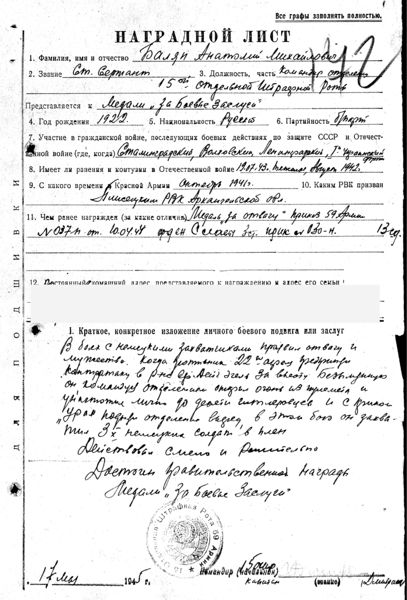 Все графы заполнять полностью.
НАГРАДНОЙ ЛИСТ
1. Фамилия, имя и отчество Анатолий Михайлович
2. Звание Ст. Сержант 3. Должность, часть командир отделения
15ой отдельной Штрафной Роты
Представляется к Медали „За Боевые Заслуги"
4. Год рождения 1922 5. Национальность Русский 6. Партийность
7. Участие в гражданской войне, последующих боевых действиях по защите СССР и Отечест-
венной войне (где, когда) Сталинградский, Волховский, Ленинградский, Украинский
8. Имеет ли ранения и контузии в Отечественной войне 19.07.43. Август 1942.
9. С какого времени в Красной Армии октябрь 1941г. 10. Каким РВК призван
Плисецким РВК Архангельской обл.
11. Чем ранее награжден (за какие отличия) Медаль „За отвагу" приказ 59 Армии
орден Славы 3 ст.
12. Постоянный домашний адрес представляемого к награждению и адрес его семьи
I. Краткое, конкретное изложение личного боевого подвига или заслуг
В боях с немецкими захватчиками проявил отвагу и
мужество. Когда противник 22го апреля предпринял
контратаку в за высоту Безымянную
он командуя отделением открыл огонь из пулемета и
лично до десяти гитлеровцев и с криком
„Ура" отделение вперед, в этом бою он захва-
тил 3х немецких солдат в плен
Действовал смело и решительно
Достоин Правительственной Награды
Медали „За Боевые Заслуги"
15 Отдельная Штрафная Рота 59 Армии
17 мая 1945 г.
Командир (начальник)
капитан
ПОДШИВКИ